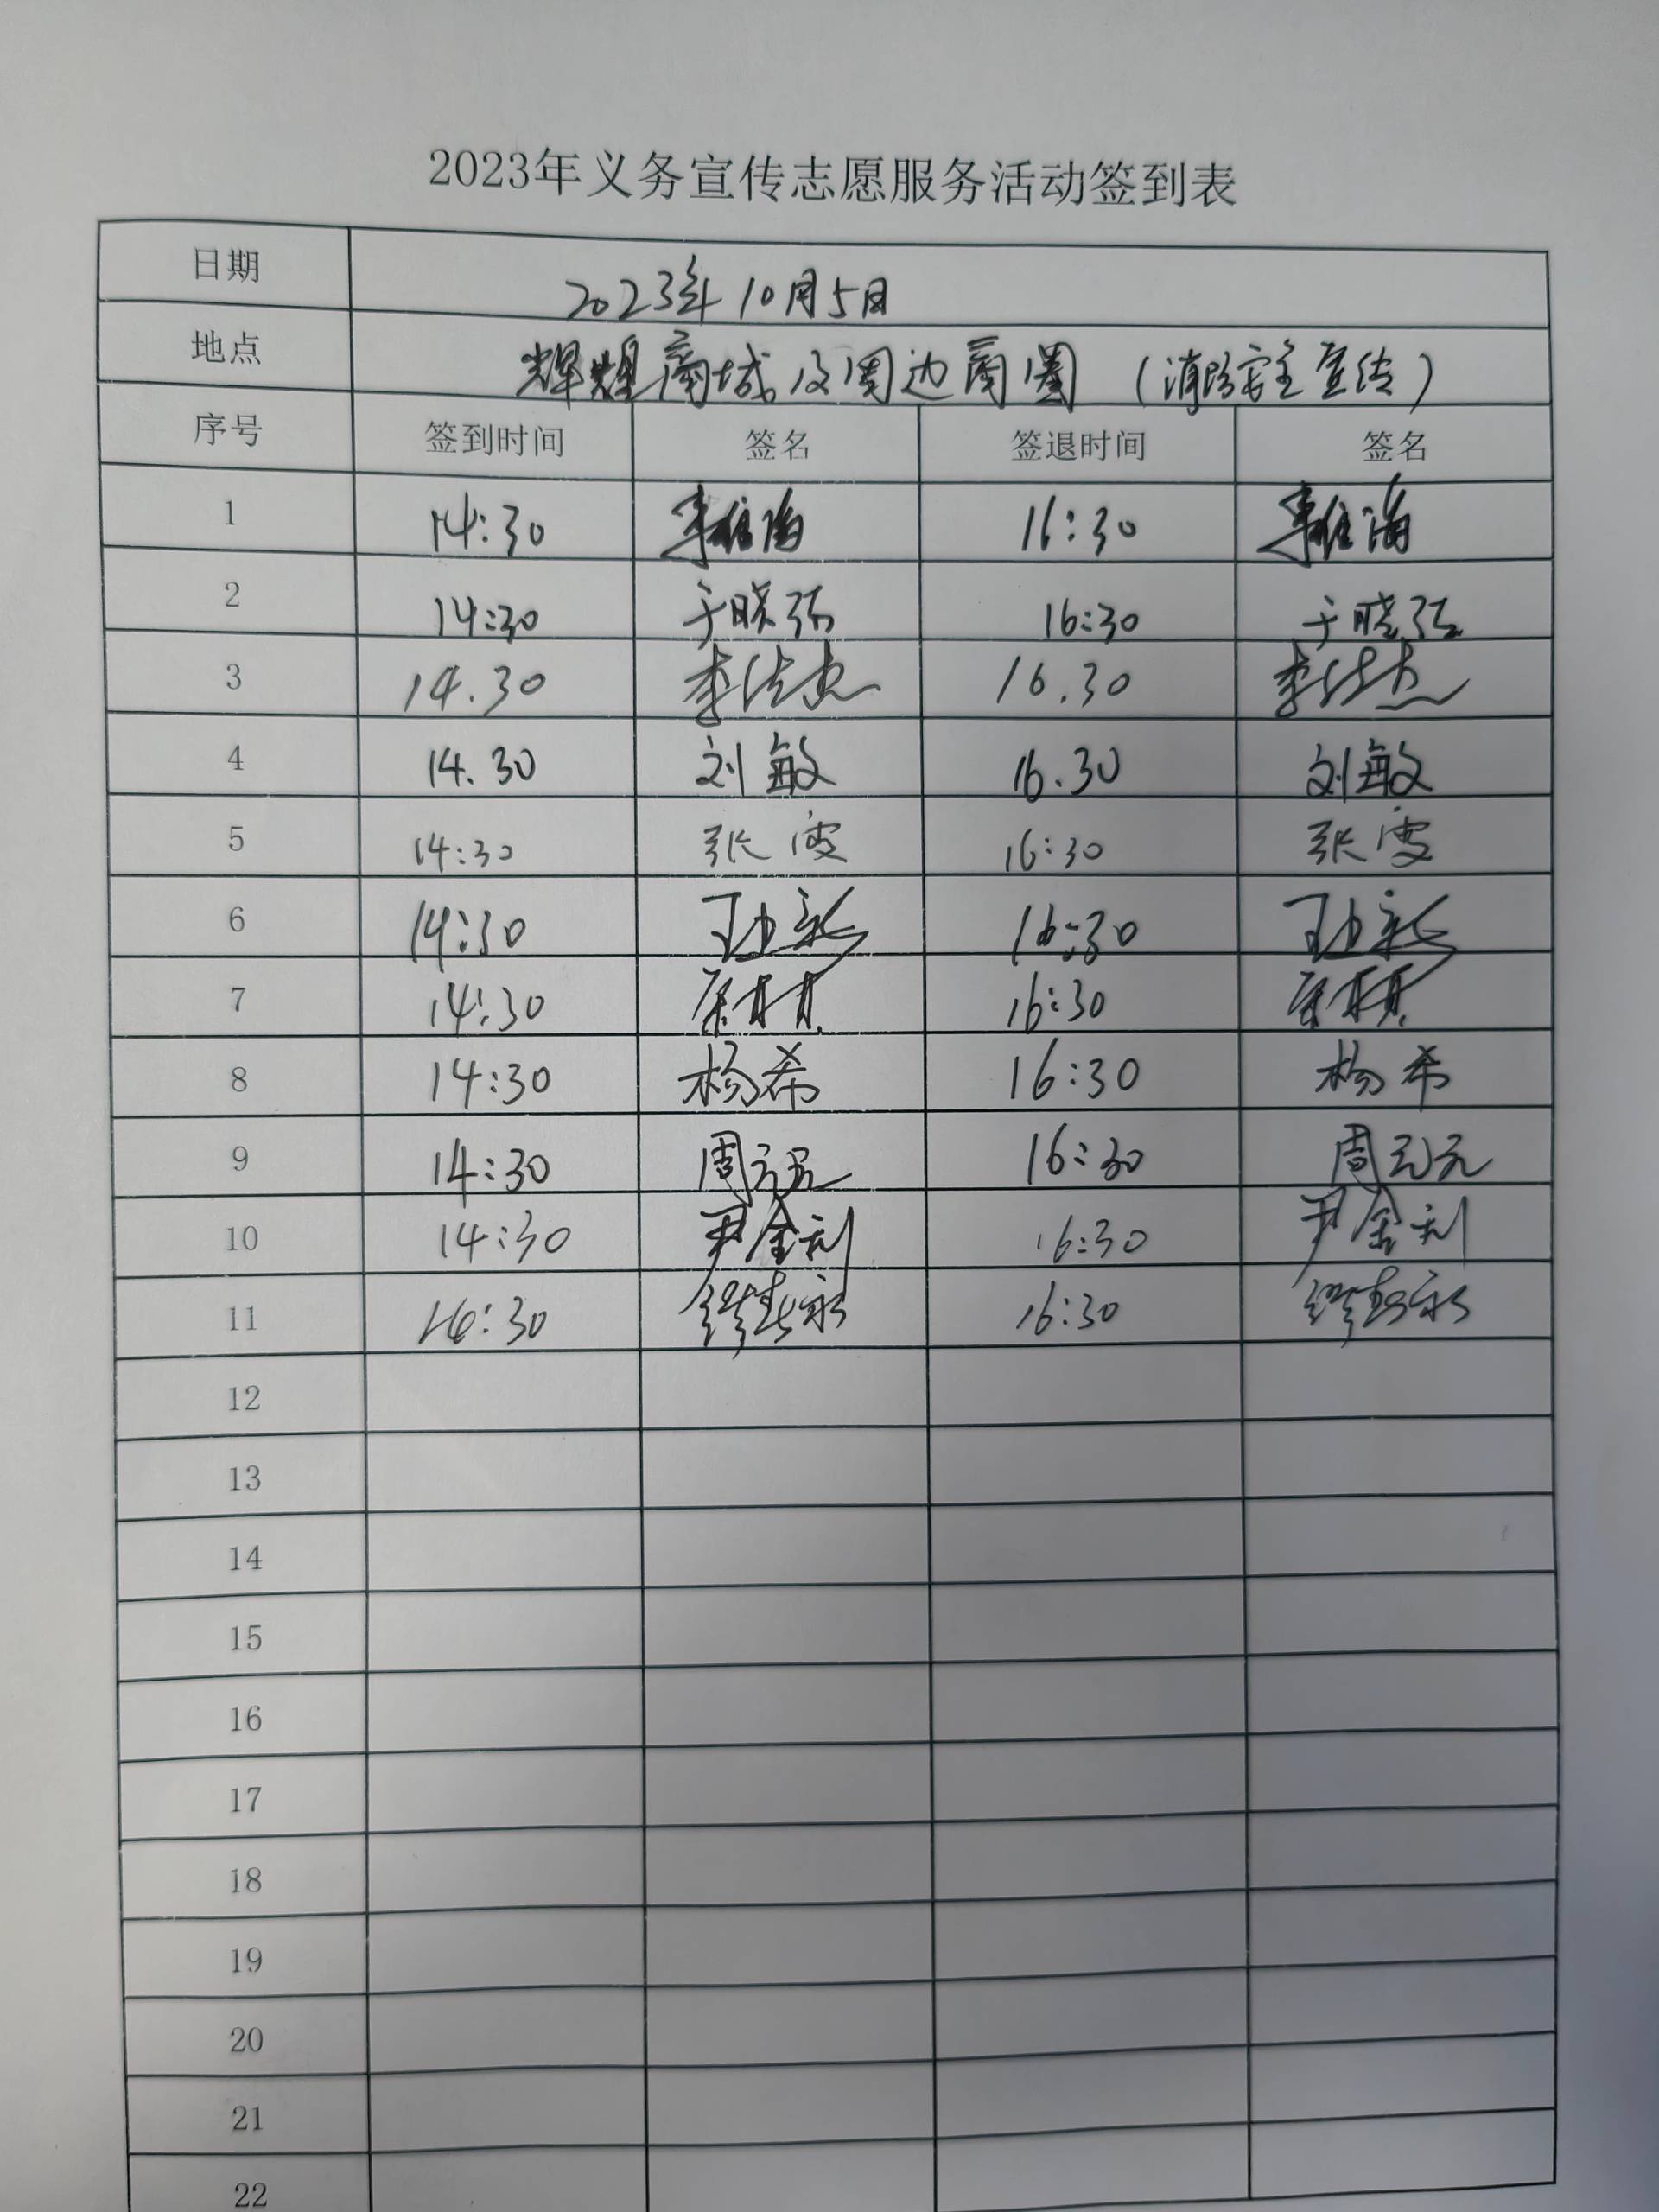 2023年义务宣传志愿服务活动签到表
日期 2023年10月5日
地点 辉煌商城及周边商圈（消防安全宣传）
序号 签到时间 签名 签退时间 签名
1 14:30 16:30
2 14:30 于晓 16:30 于晓
3 14.30 李 16.30 李
4 14.30 刘敏 16.30 刘敏
5 14:30 张雯 16:30 张雯
6 14:30 16:30
7 14:30 16:30
8 14:30 杨希 16:30 杨希
9 14:30 周元元 16:30 周元元
10 14:30 尹金利 16:30 尹金利
11 16:30 16:30
12
13
14
15
16
17
18
19
20
21
22